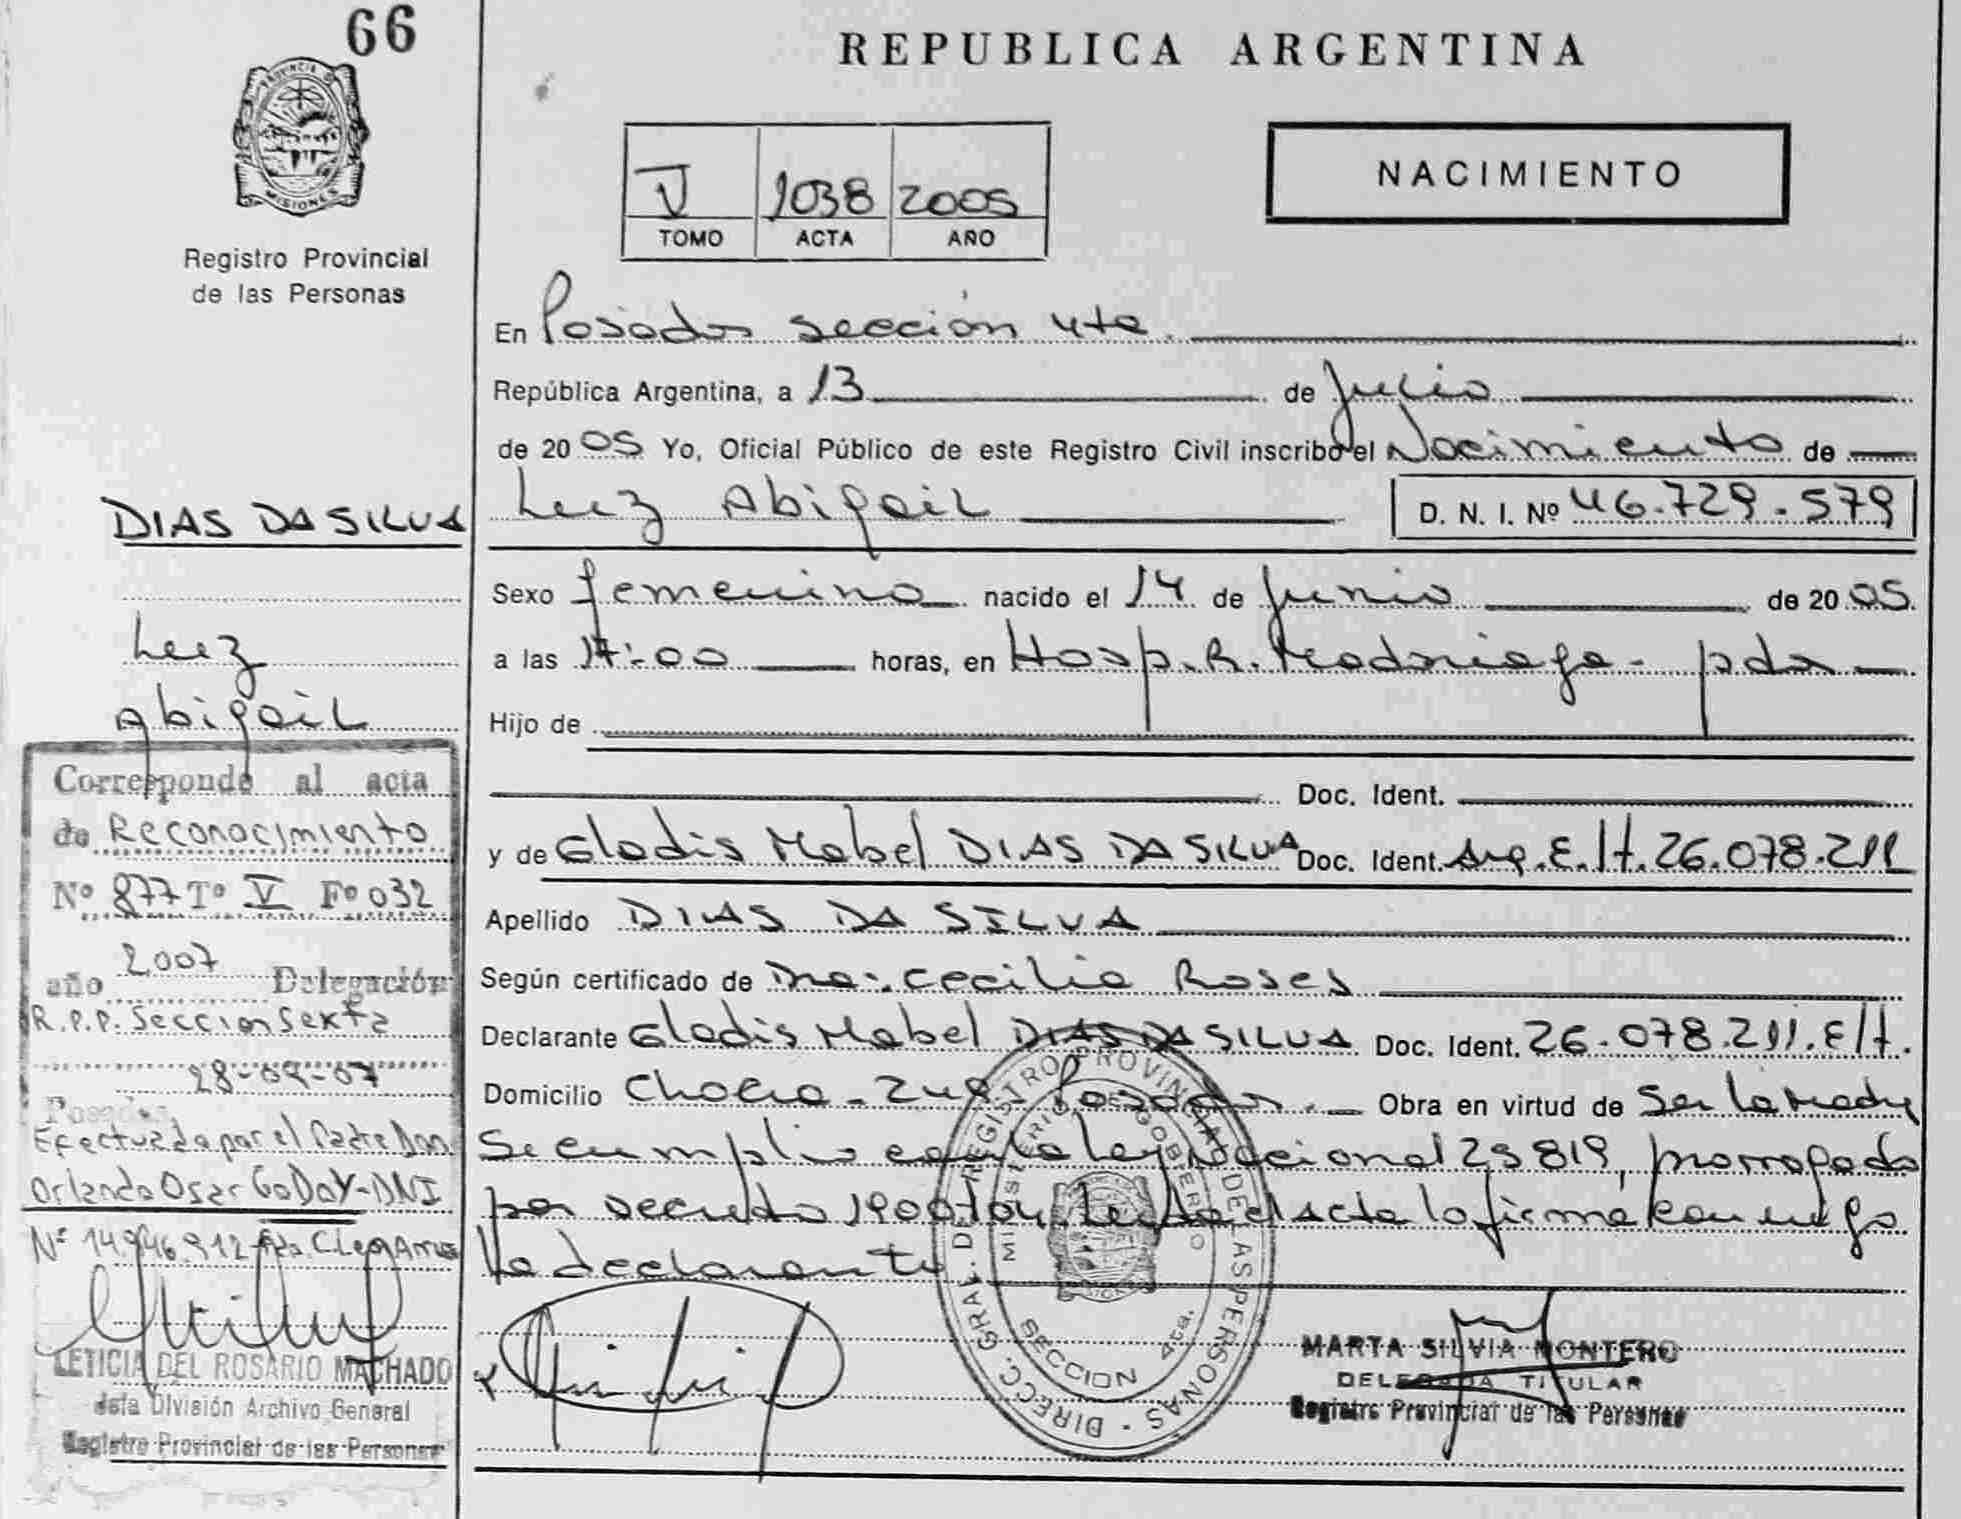 66
PROVINCIA D
MISIONES
Registro Provincial
de las Personas
DIAS DA SILVA
Luz
Abigail
Corresponde al acta
de Reconocimiento
Nº 877 Tº V Fº 032
año 2007 Delegación
R.P.P. Sección Sexta
28-09-07
Posadas,
Efectuada por el Padre Don
Orlando Oscar GODOY-DNI
Nº 14.946.912
LETICIA DEL ROSARIO MACHADO
Jefa División Archivo General
Registro Provincial de las Personas
REPUBLICA ARGENTINA
V 1038 2005
TOMO ACTA AÑO
NACIMIENTO
En Posadas sección 4ta.
República Argentina, a 13 de Julio
de 2005 Yo, Oficial Público de este Registro Civil inscribo el Nacimiento de
Luz Abigail D. N. I. Nº 46.729.579
Sexo femenino nacido el 14 de Junio de 2005.
a las 17:00 horas, en Hosp. R. Madariaga - pdas
Hijo de
Doc. Ident.
y de Gladis Mabel DIAS DA SILVA Doc. Ident. Arg. E./t. 26.078.211
Apellido DIAS DA SILVA
Según certificado de Dra. Cecilia Roses
Declarante Gladis Mabel DIAS DA SILVA Doc. Ident. 26.078.211. E/t.
Domicilio Chacra - 248 Posadas. Obra en virtud de Ser la Madre
Se cumplio con la ley nacional 25819, prorrogada
por decreto 1900/04. Leida el acta la firma conmigo
la declarante
DIRECC. GRAL. DEL REGISTRO PROVINCIAL DE LAS PERSONAS
MINISTERIO DE GOBIERNO
SECCION 4ta.
MARTA SILVIA MONTERO
DELEGADA TITULAR
Registro Provincial de las Personas